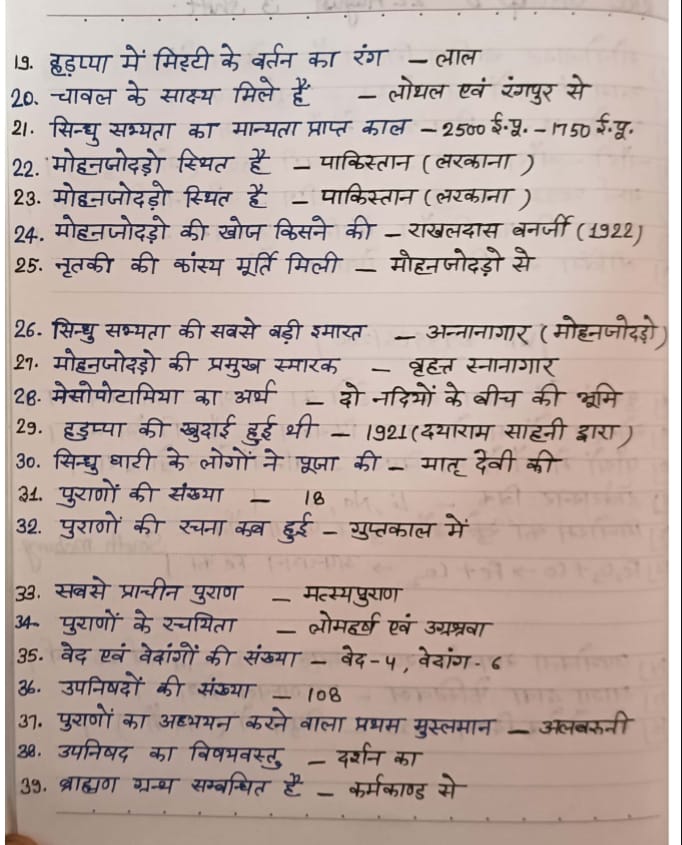 19. हड़प्पा में मिट्टी के बर्तन का रंग – लाल
20. चावल के साक्ष्य मिले हैं – लोथल एवं रंगपुर से
21. सिन्धु सभ्यता का मान्यता प्राप्त काल – 2500 ई.पू. – 1750 ई.पू.
22. मोहनजोदड़ो स्थित है – पाकिस्तान (लरकाना)
23. मोहनजोदड़ो स्थित है – पाकिस्तान (लरकाना)
24. मोहनजोदड़ो की खोज किसने की – राखलदास बनर्जी (1922)
25. नृतकी की कांस्य मूर्ति मिली – मोहनजोदड़ो से
26. सिन्धु सभ्यता की सबसे बड़ी इमारत – अन्नानागार (मोहनजोदड़ो)
27. मोहनजोदड़ो की प्रमुख स्मारक – वृहत्त स्नानागार
28. मेसोपोटामिया का अर्थ – दो नदियों के बीच की भूमि
29. हडप्पा की खुदाई हुई थी – 1921 (दयाराम साहनी द्वारा)
30. सिन्धु घाटी के लोगों ने पूजा की – मातृ देवी की
31. पुराणों की संख्या – 18
32. पुराणों की रचना कब हुई – गुप्तकाल में
33. सबसे प्राचीन पुराण – मत्स्यपुराण
34- पुराणों के रचयिता – लोमहर्ष एवं उग्रश्रवा
35. वेद एवं वेदांगों की संख्या – वेद-4, वेदांग-6
36. उपनिषदों की संख्या – 108
37. पुराणों का अध्ययन करने वाला प्रथम मुस्लमान – अलबरुनी
38. उपनिषद का विषयवस्तु – दर्शन का
39. ब्राह्मण ग्रन्थ सम्बन्धित है – कर्मकाण्ड से